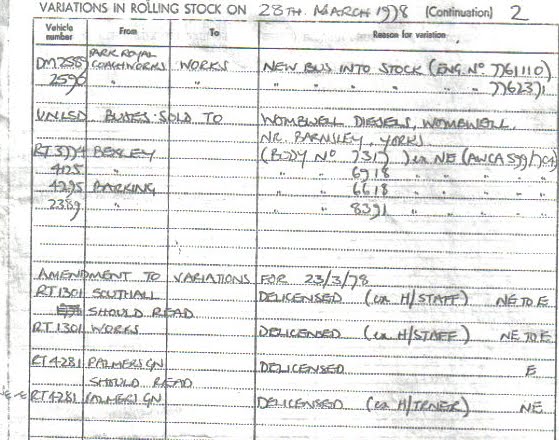 VARIATIONS IN ROLLING STOCK ON 28TH. MARCH 1978 (Continuation) 2
Vehicle number From To Reason for variation
PARK ROYAL
DM2589 COACHWORKS WORKS NEW BUS INTO STOCK (ENG. No. 7761110)
2596 " " " " " " " " 7762371
UNLSD BUSES SOLD TO WOMBWELL DIESELS, WOMBWELL,
NR. BARNSLEY YORKS
RT3774 BEXLEY (BODY No 7317 ) ex NE (AWCA 599/704)
4125 " " " 6918 " " " "
4295 BARKING " " 6618 " " " "
2389 " " " 8391 " " " "
AMENDMENT TO VARIATIONS FOR 23/3/78
RT1301 SOUTHALL DELICENSED (ex H/STAFF) NE TO E
SHOULD READ
RT1301 WORKS DELICENSED (ex H/STAFF) NE TO E
RT4281 PALMERS GN DELICENSED E
SHOULD READ
RT4281 PALMERS GN DELICENSED (ex H/TRNER) NE